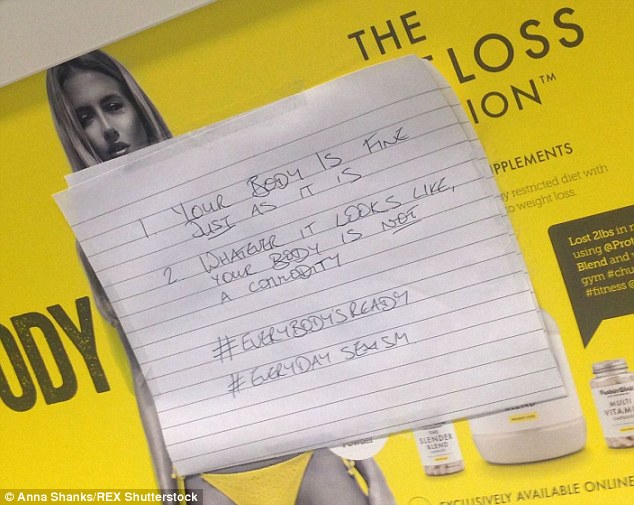 THE
LOSS
ION™
PPLEMENTS
restricted diet with
o weight loss.
Lost 2lbs in
using @Prot
Blend and
gym #chu
#fitness @
ODY
1. YOUR BODY IS FINE
JUST AS IT IS
2. WHATEVER IT LOOKS LIKE,
YOUR BODY IS NOT
A COMMODITY
#EVERYBODYSREADY
#EVERYDAY SEXISM
THE
SLENDER
BLEND
MULTI
VITAM
EXCLUSIVELY AVAILABLE ONLINE
© Anna Shanks/REX Shutterstock